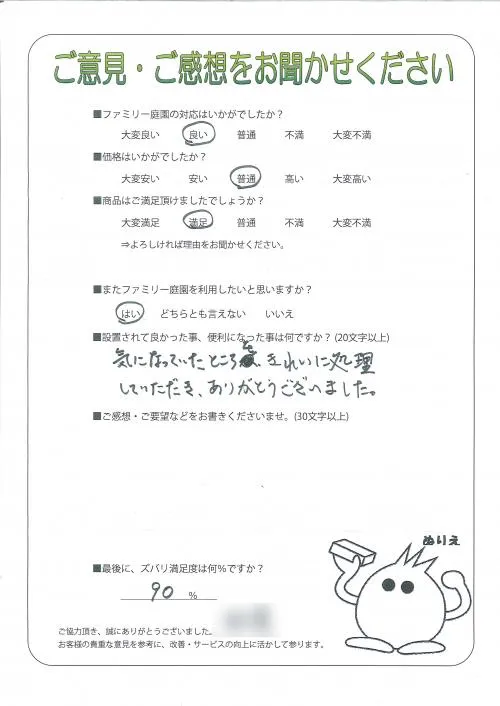 ご意見・ご感想をお聞かせください
■ファミリー庭園の対応はいかがでしたか？
大変良い 良い 普通 不満 大変不満
■価格はいかがでしたか？
大変安い 安い 普通 高い 大変高い
■商品はご満足頂けましたでしょうか？
大変満足 満足 普通 不満 大変不満
⇒よろしければ理由をお聞かせください。
■またファミリー庭園を利用したいと思いますか？
はい どちらとも言えない いいえ
■設置されて良かった事、便利になった事は何ですか？(20文字以上)
気になっていたところを きれいに処理
していただき、ありがとうございました。
■ご感想・ご要望などをお書きくださいませ。(30文字以上)
ぬりえ
■最後に、ズバリ満足度は何％ですか？
90 %
ご協力頂き、誠にありがとうございました。
お客様の貴重な意見を参考に、改善・サービスの向上に活かして参ります。